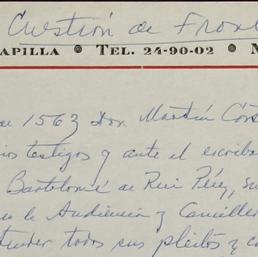 Cuestión de Fron
APILLA • TEL. 24-90-02 • M
de 1563 Don Martín Cort
ios testigos y ante el escriba
Bartolomé de Ruiz Pérez, su
en la Audiencia y Canciller
tender todos sus pleitos y c